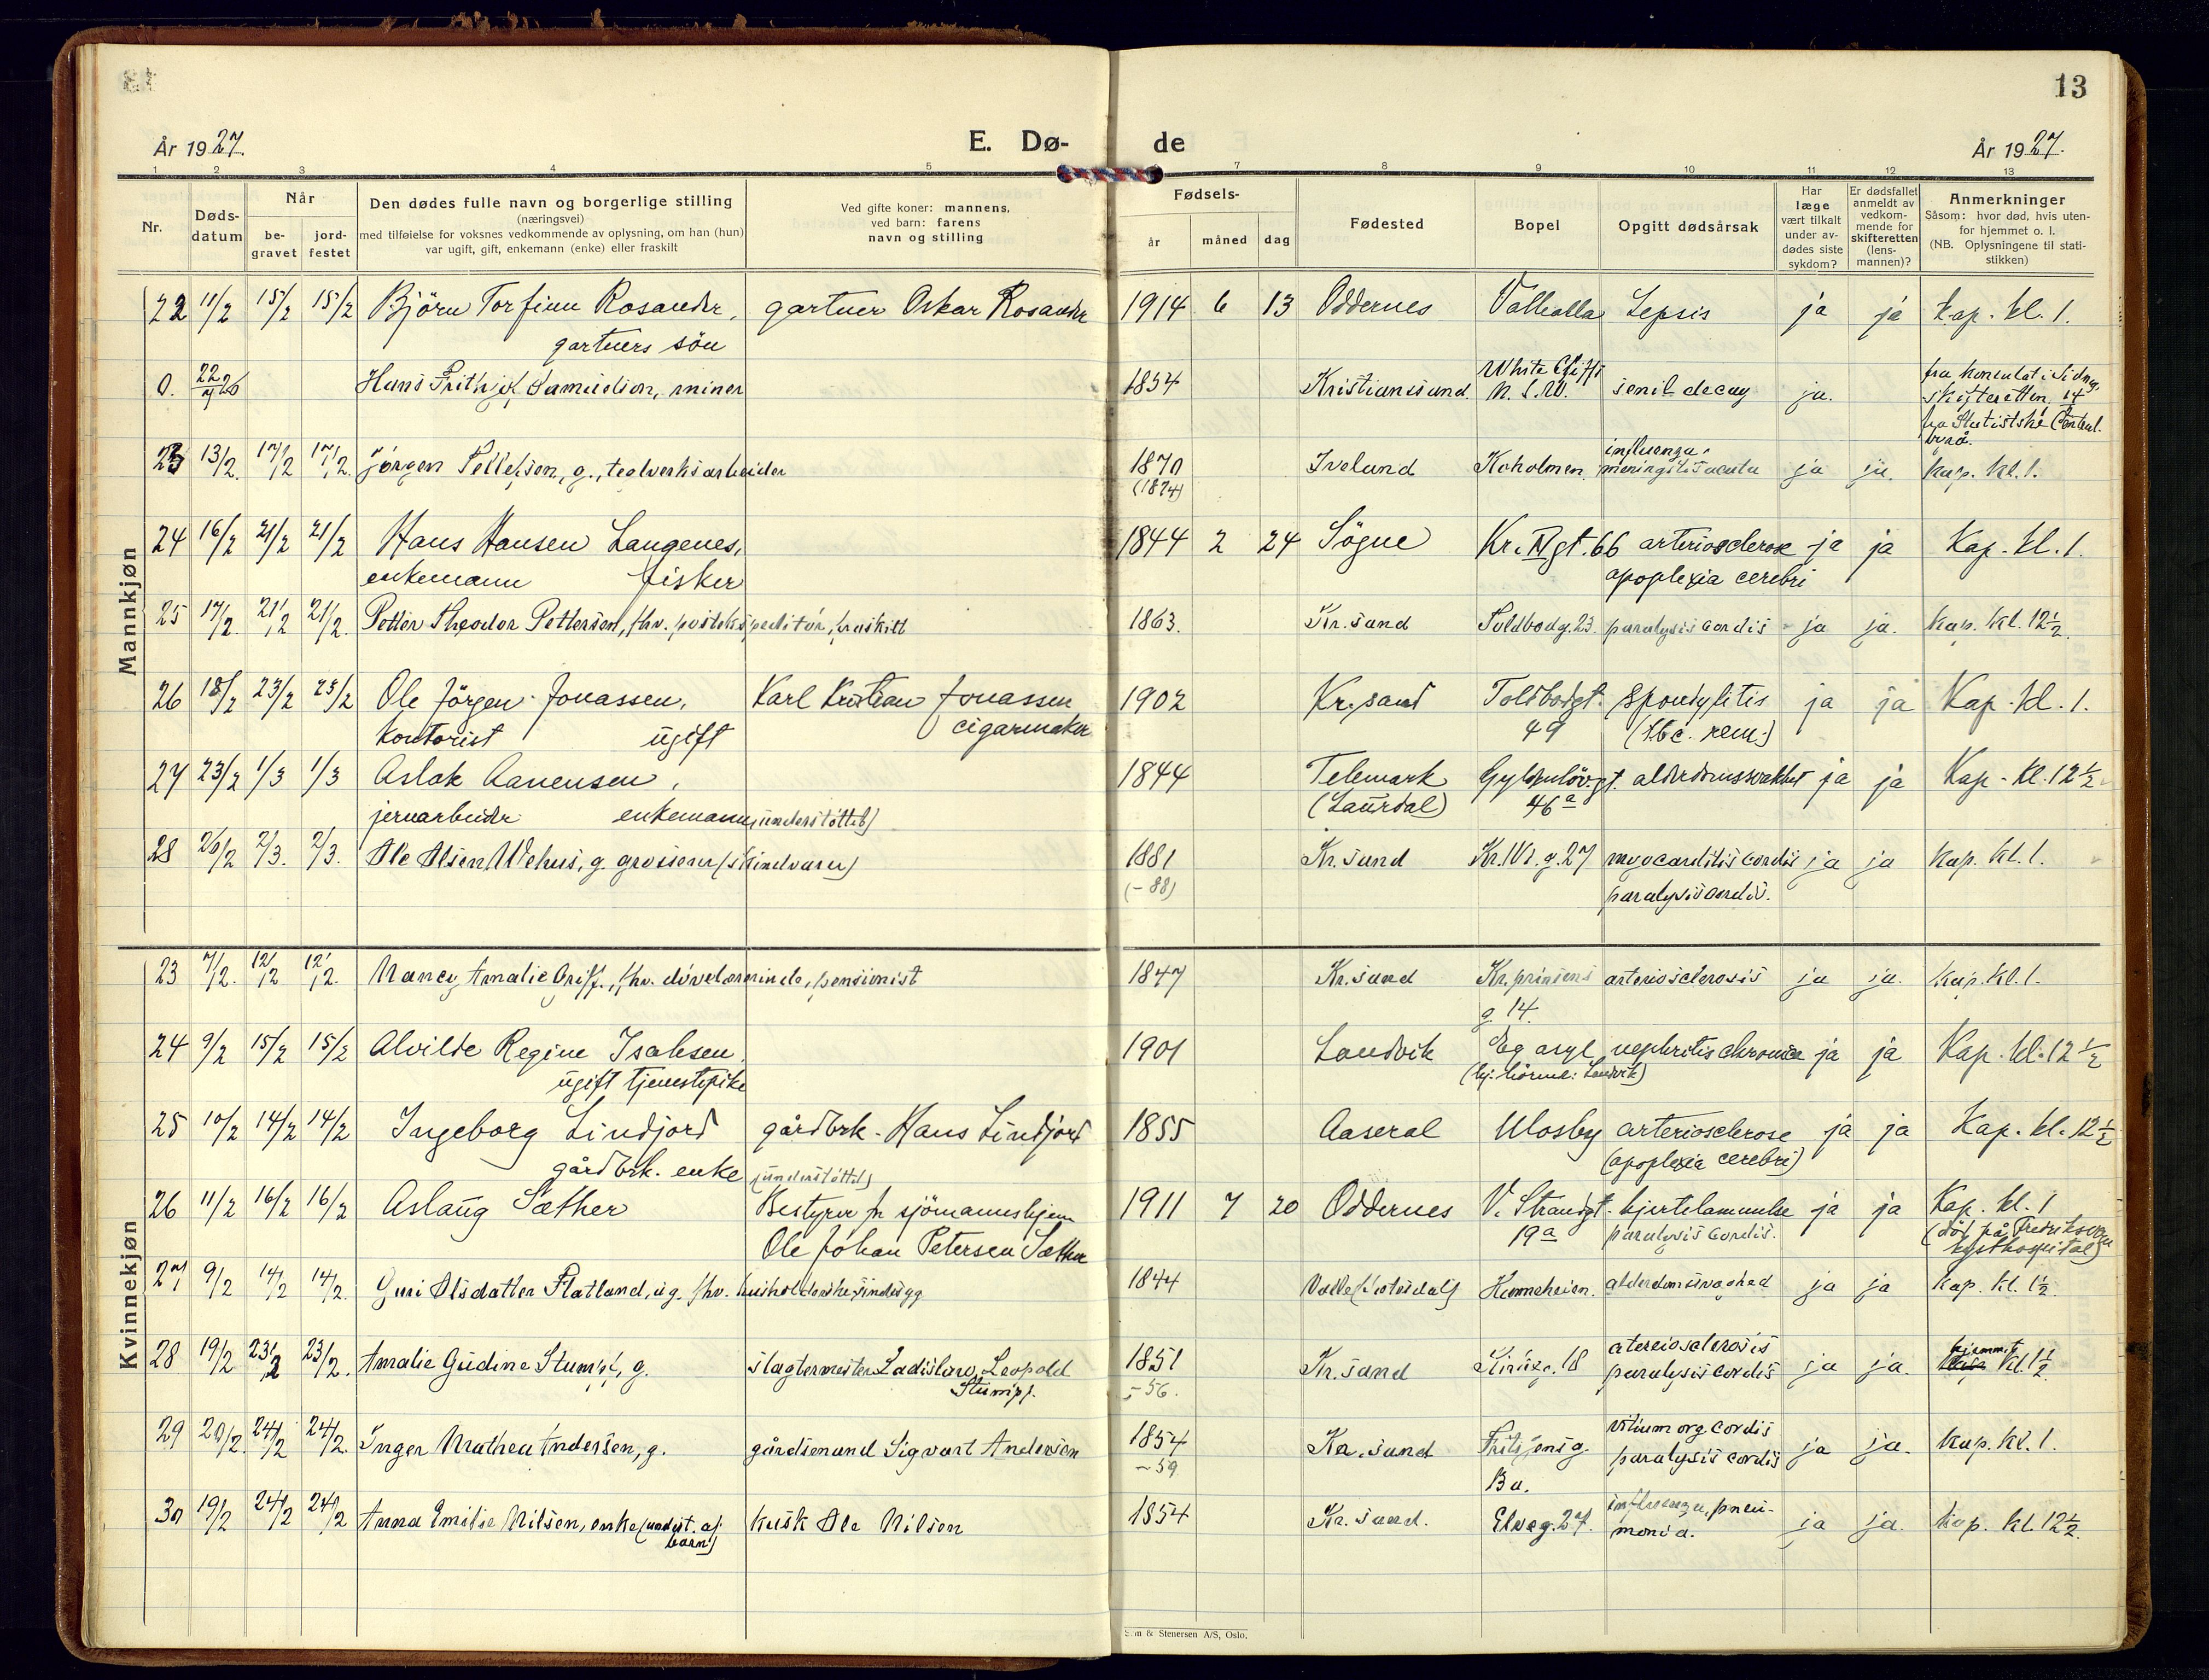 13
År 1927.
E. Dø-
de
År 1927.
1 2 3 4 5 6 7 8 9 10 11 12 13
Nr.
Døds-
datum
Når
be-
gravet
jord-
festet
Den dødes fulle navn og borgerlige stilling
(næringsvei)
med tilføielse for voksnes vedkommende av oplysning, om han (hun)
var ugift, gift, enkemann (enke) eller fraskilt
Ved gifte koner: mannens,
ved barn: farens
navn og stilling
Fødsels-
år
måned
dag
Fødested
Bopel
Opgitt dødsårsak
Har
læge
vært tilkalt
under av-
dødes siste
sykdom?
Er dødsfallet
anmeldt av
vedkom-
mende for
skifteretten
(lens-
mannen)?
Anmerkninger
Såsom: hvor død, hvis uten-
for hjemmet o. l.
(NB. Oplysningene til stati-
stikken)
Mannkjøn
22 11/2 15/2 15/2 Björn Torfinn Rosander, gartner Oskar Rosander 1914 6 13 Oddernes Valhalla Sepsis ja ja Kap. kl. 1.
gartners sön
0. 22/9 26 Hans Frithjof Samuelson, miner 1854 Kristiansund. White Cliffs N.S.W. senil decay ja. fra konsulat i Sidney,
skifteretten, 14
fra Statistiske Central-
byrå.
23 13/2. 17/2 17/2. Jörgen Pellefsen, g., teglverksarbeider 1870 Iveland Koholmen. influenza, meningitis acuta ja ja. Kap. kl. 1.
(1874)
24 16/2 21/2 21/2 Hans Hansen Langenes, 1844 2 24 Sögne Kr. IV gt. 66 arteriosclerose ja ja Kap. kl. 1.
enkemann fisker apoplexia cerebri
25 17/2. 21/2 21/2. Petter Theodor Pettersen, fhv. postekspeditör, fraskilt 1863. Kr.sand Toldbodg. 23. paralysis cordis ja ja. Kap. Kl. 12½.
26 18/2 23/2 23/2 Ole Jörgen Jonassen, Karl Kristian Jonassen 1902 Kr.sand Toldbodgt. Spondylitis ja ja Kap. kl. 1.
kontorist ugift cigarmaker 49 (tbc. rem.)
27 23/2 1/3 1/3 Aslak Aanensen, 1844 Telemark Gyldenlövgt. alderdomssvakhet ja ja Kap. kl. 12½
jernarbeider enkemann (understöttet) (Laurdal) 46a
28 26/2 2/3. 2/3. Ole Olsen Wehus, g. grosserer (skindvarer) 1881 Kr.sand Kr. IVs. g. 27 myocarditis cordis ja ja Kap. kl. 1.
(-88) paralysis cordis.
Kvinnekjøn
23 7/2. 12/2 12/2. Nancy Amalie Griff., fhv. dövelærerinde, pensionist 1847 Kr.sand Kr. prinsens arteriosclerosis ja ja. Kap. kl. 1.
g. 14.
24 9/2 15/2 15/2 Alvilde Regine Isaksen. 1901 Landvik Eg asyl nephritis chronica ja ja Kap. kl. 12½
ugift tjenestepike (hj. hörende: Landvik)
25 10/2 14/2 14/2 Ingeborg Lindjord gårdbrk. Hans Lindjord 1855 Aaseral Mosby arteriosclerose ja ja Kap. kl. 12½
gårdbrk. enke (understöttet) (apoplexia cerebri)
26 11/2 16/2 16/2 Aslaug Sæther Bestyrer for sjömannshjem 1911 7 20 Oddernes V. Strandgt. hjertelammelse ja ja Kap. kl. 1
Ole Johan Petersen Sæther 19a paralysis cordis. (död på Fredriksvern
kysthospital)
27 9/2 14/2 14/2. Guri Olsdatter Flatland, ug. fhv. husholderske, sindssyg 1844 Valle (Setesdal) Hanneheien. alderdomssvaghed ja ja Kap. kl. 1½.
28 19/2 23/2 23/2. Amalie Gudine Stumpf, g. slagtermester Ladislaw Leopold 1851 Kr.sand Kirkeg. 18 atereiosclerosis ja ja. hjemmet kl. 1½.
Stumpf. -56. paralysis cordis
29 20/2. 24/2 24/2. Inger Mathea Andersen, g. gårdsmand Sigvart Andersen 1854 Kr.sand Fritjensg. vitium org cordis ja ja. Kap. kl. 1.
-59 Ba. paralysis cordis
30 19/2 24/2 24/2 Anna Emilie Nilsen, enke (underst. af kusk Ole Nilsen 1854 Kr.sand. Elveg. 27. influenza, pneu- ja ja. Kap. kl. 12½.
barn) monia.
Sem & Stenersen A/S, Oslo.